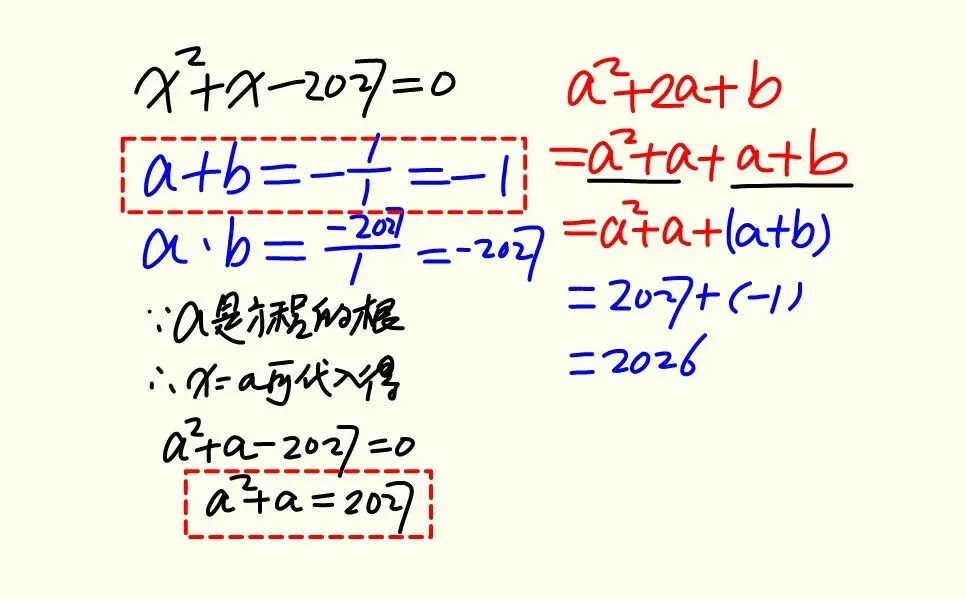 x²+x-2027=0
a+b=-1/1=-1
a·b=-2027/1=-2027
∵a是方程的根
∴x=a可代入得
a²+a-2027=0
a²+a=2027
a²+2a+b
=a²+a+a+b
=a²+a+(a+b)
=2027+(-1)
=2026